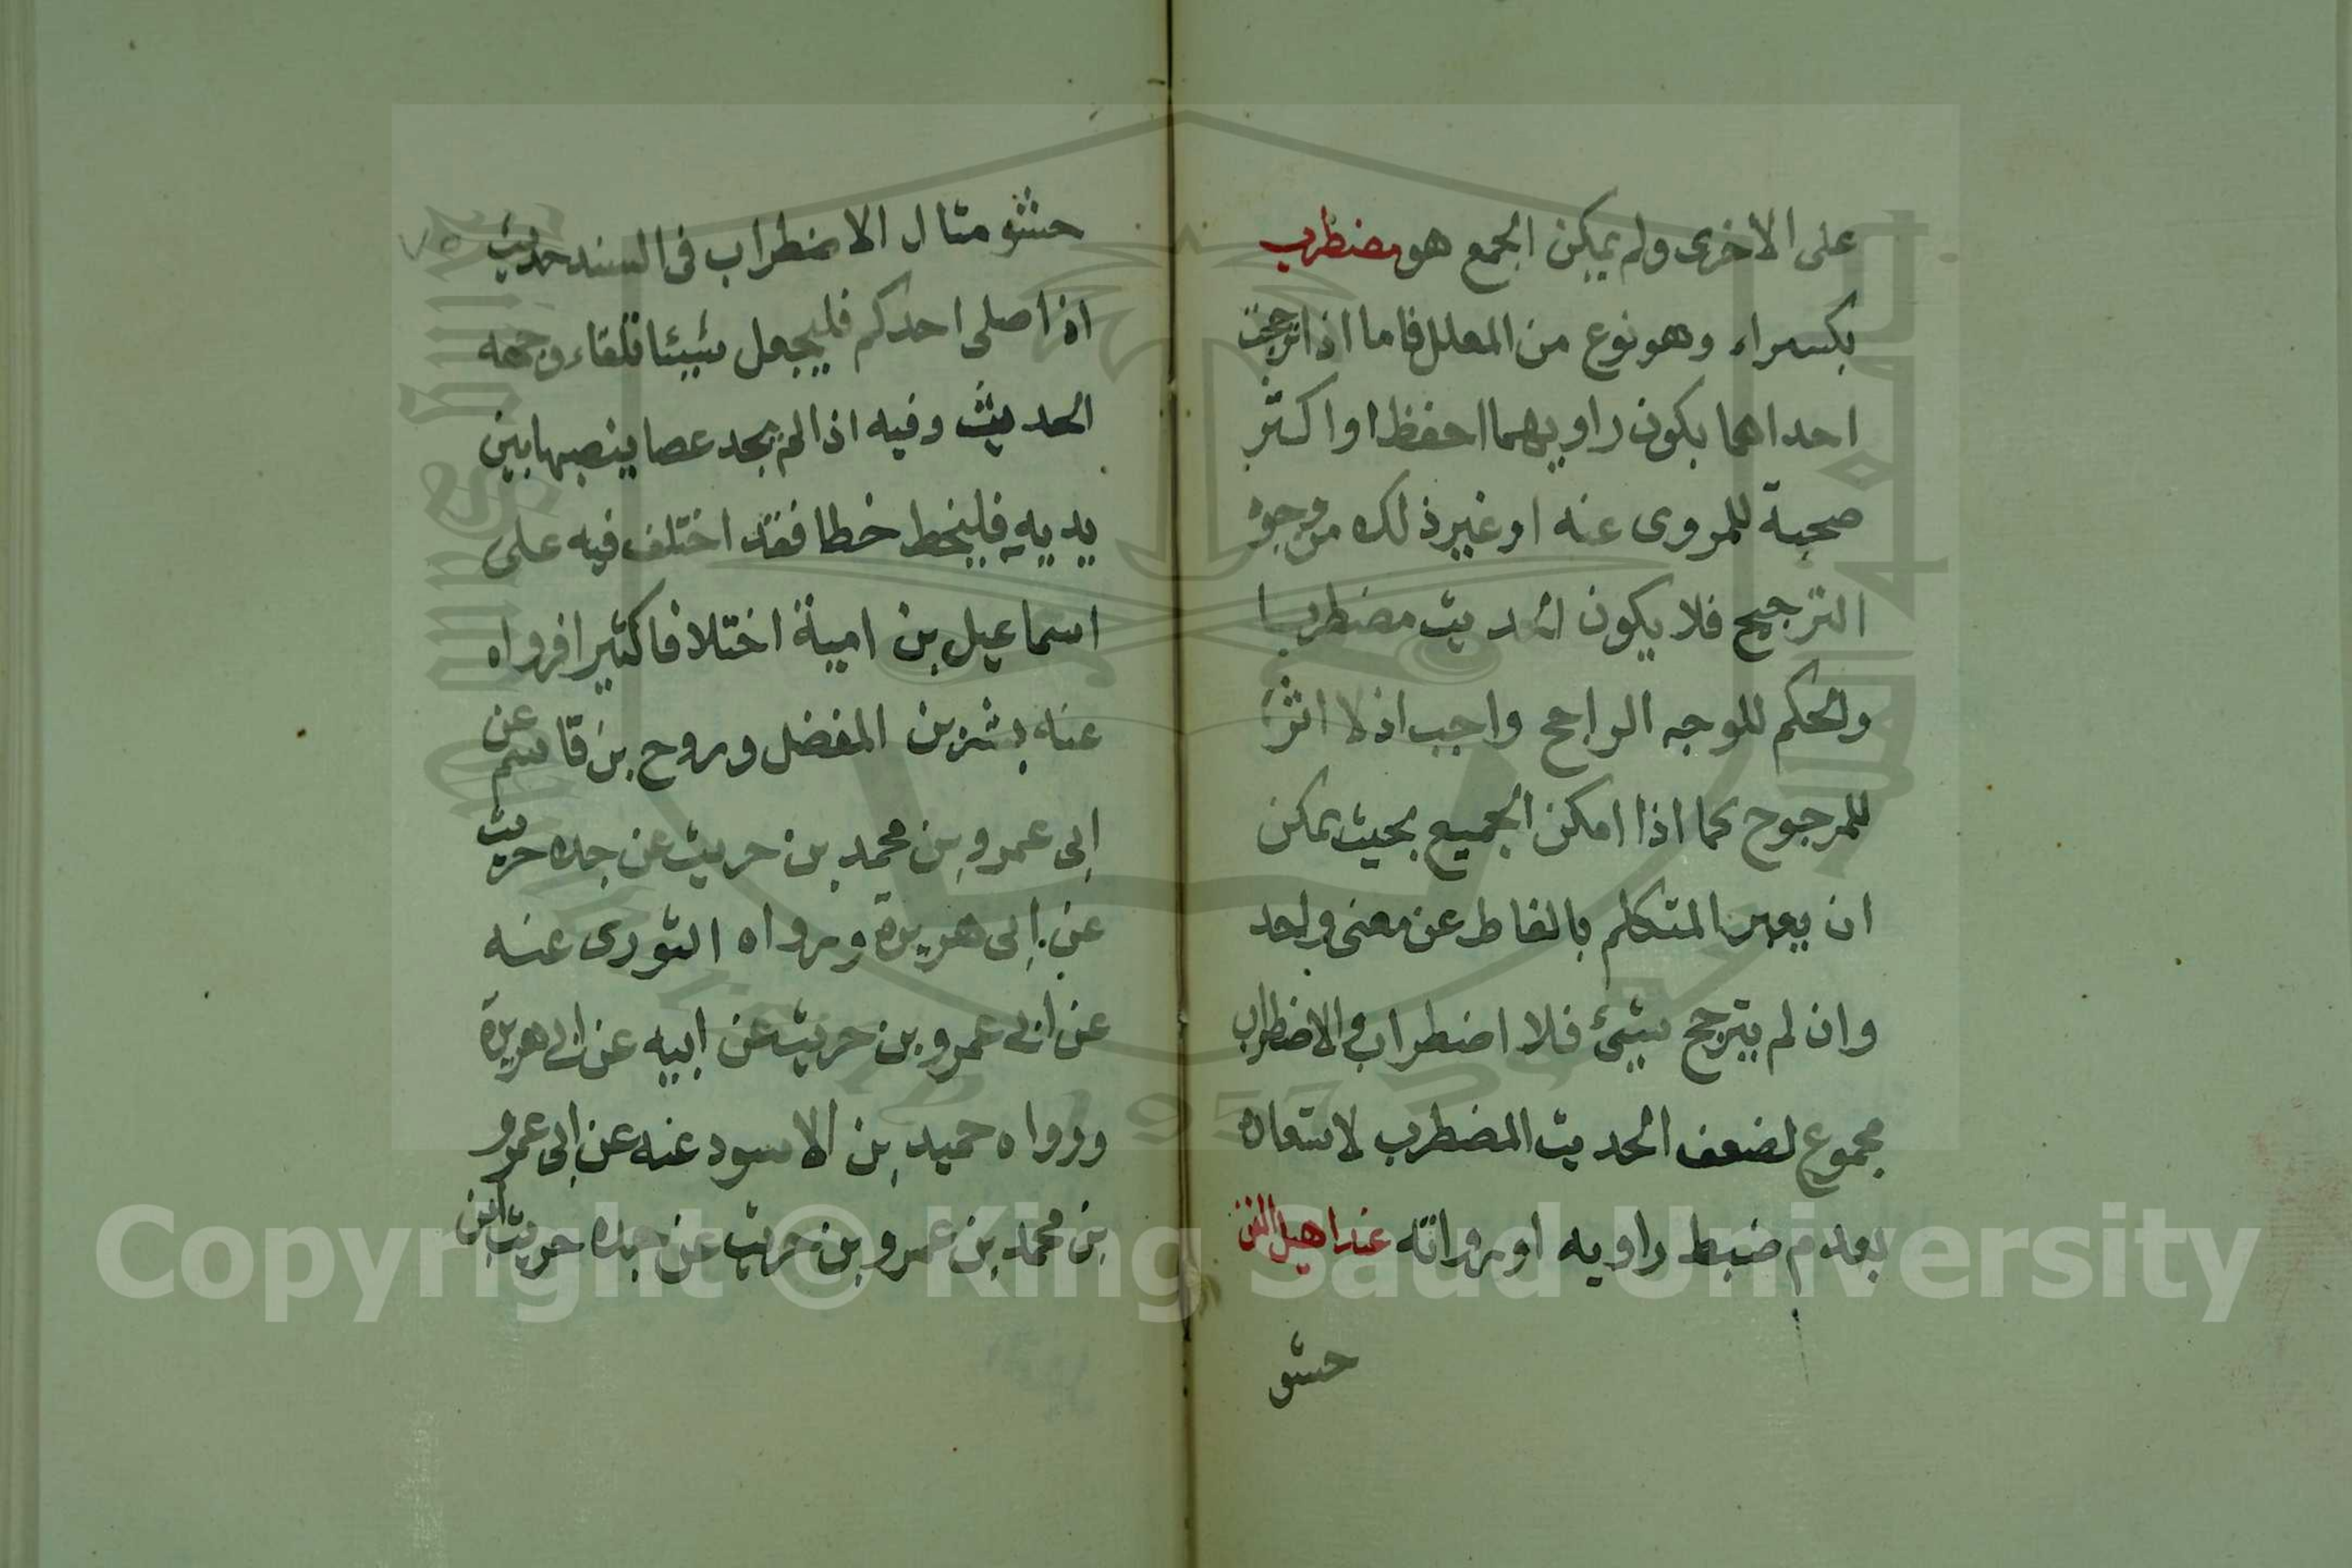 على الاخرى ولم يمكن الجمع هو مضطرب
بكسر راء وهو نوع من المعلل فاما اذا ترجحت
احداهما بكون راويهما احفظ او اكثر
صحبة للمروى عنه او غير ذلك من وجوه
الترجيح فلا يكون الحديث مضطربا
والحكم للوجه الراجح واجب اذ لا اثر
للمرجوح كما اذا امكن الجميع بحيث يمكن
ان يعبر المتكلم بالفاط عن معنى واحد
وان لم يترجح شيئ فلا اضطراب والاضطراب
مجموع لضعف الحديث المضطرب لاشعاره
بعدم ضبط راويه او رواته عند اهيل الفن
حشو
حشو مثال الاضطراب فى السند حديث
اذا صلى احدكم فليجعل شيئا تلقاء وجهه
الحديث وفيه اذا لم يجد عصا ينصبها بين
يديه فليخط خطا فقد اختلف فيه على
اسماعيل بن امية اختلافا كثيرا فرواه
عنه بشر بن المفضل وروح بن قاسم عن
ابى عمرو بن محمد بن حريث عن جده حريث
عن ابى هريرة ورواه الثورى عنه
عن ابى عمرو بن حريث عن ابيه عن ابى هريرة
ورواه حميد بن الاسود عنه عن ابى عمرو
بن محمد بن عمرو بن حريث عن جده حريث ابن
Copyright © King Saud University
1957